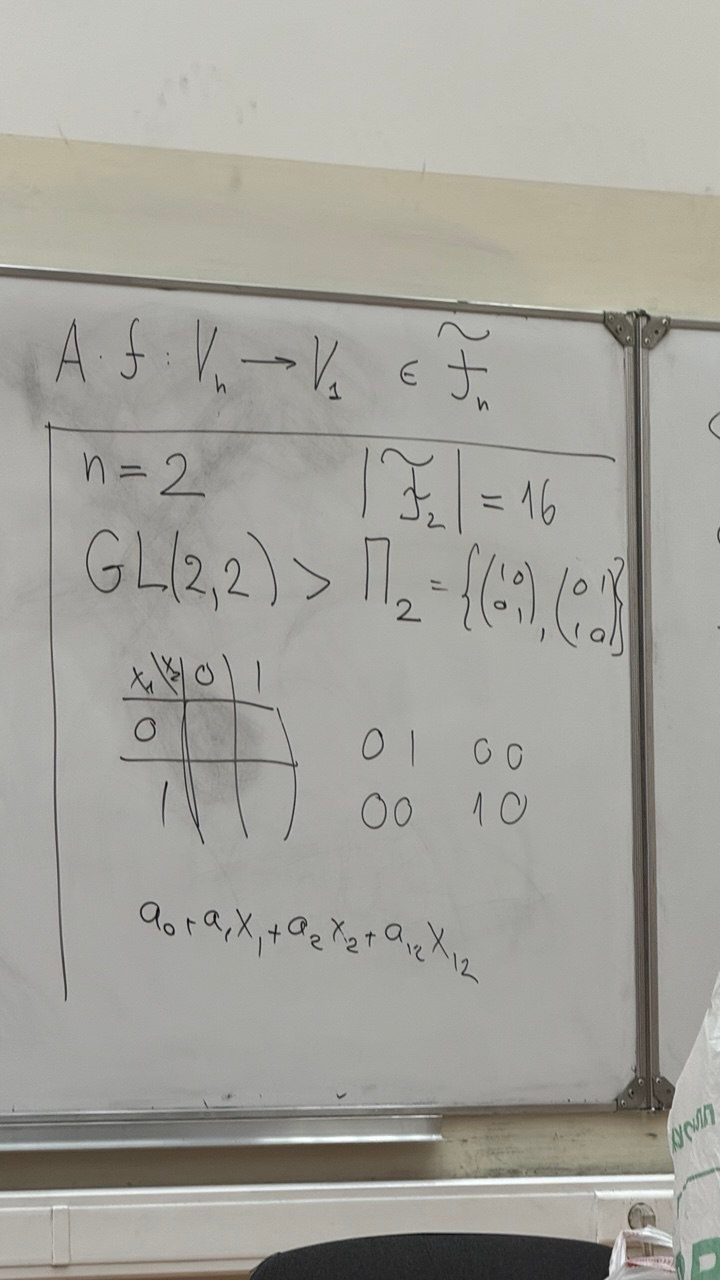 A · f : Vₙ → V₁ ∈ f̃ₙ
n = 2 |F̃₂| = 16
GL(2,2) > Π₂ = {(1 0 / 0 1), (0 1 / 1 0)}
x₁\x₂ 0 1
0
0 1 0 0
1
0 0 1 0
a₀ + a₁x₁ + a₂x₂ + a₁₂x₁₂